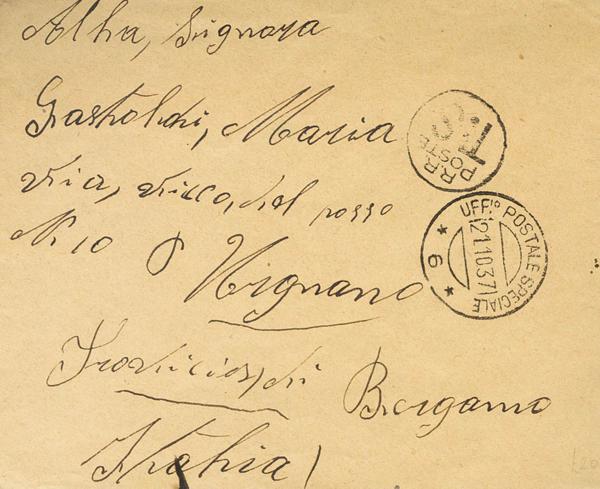 Alha, Signora
Grastoldi, Maria
Via, vicco, del posso
N 10
Vignano
Provicia, di Bergamo
Itahia
R.R.
POSTE
T.S.
UFF.º POSTALE SPECIALE
21.10.37
* 6 *